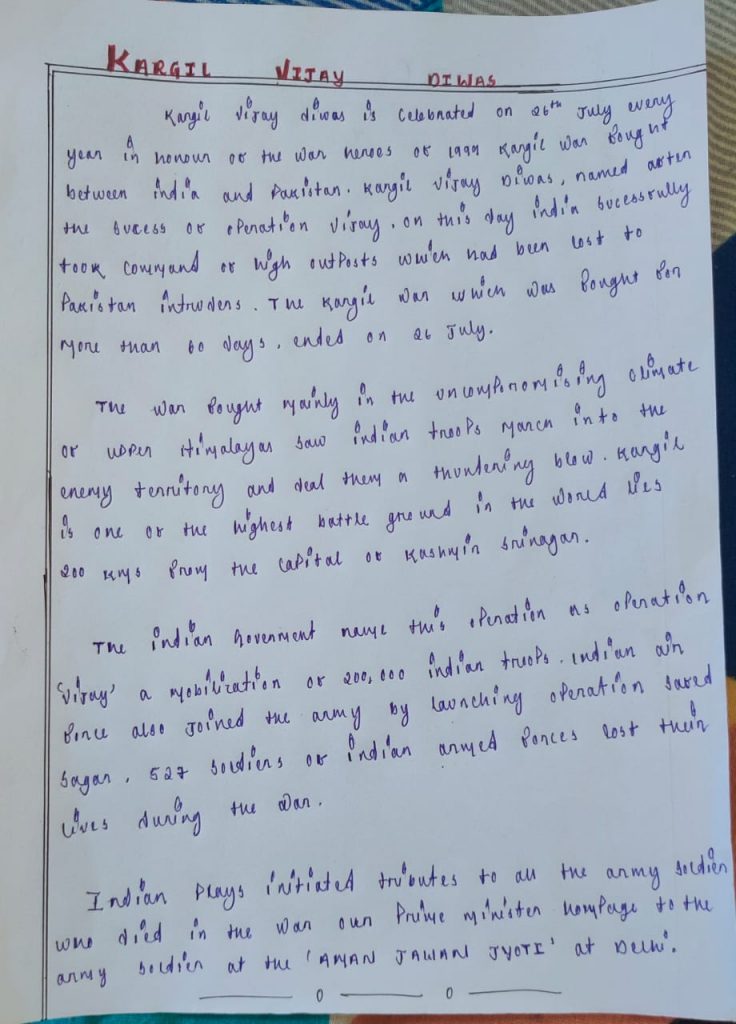 KARGIL VIJAY DIWAS
Kargil Vijay diwas is celebrated on 26th July every
year in honour of the war heroes of 1999 Kargil War fought
between india and Pakistan. Kargil Vijay Diwas, named after
the sucess of operation Vijay. on this day india sucessfully
took command of high outposts which had been lost to
Pakistan intruders. The Kargil war which was fought for
more than 60 days, ended on 26 July.
The war fought mainly in the uncompromising climate
of upper Himalayas saw indian troops march into the
enemy territory and deal them a thundering blow. Kargil
is one of the highest battle ground in the world lies
200 kms from the capital of Kashmir Srinagar.
The indian Government name this operation as operation
'Vijay' a mobilization of 200,000 indian troops. indian air
force also joined the army by launching operation safed
sagar. 527 soldiers of indian armed forces lost their
lives during the war.
Indian plays initiated tributes to all the army soldier
who died in the war our Prime Minister hompage to the
army soldier at the 'AMAN JAWAN JYOTI' at Delhi.